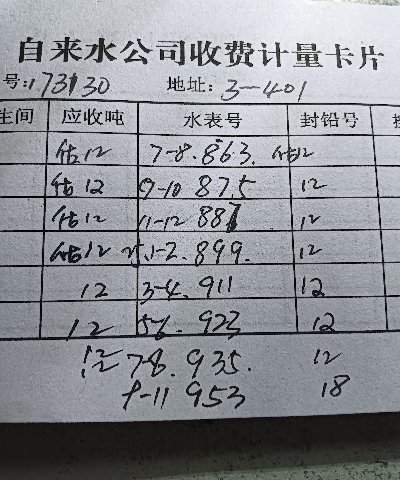 自来水公司收费计量卡片
号:173130 地址:3-401
生间 应收吨 水表号 封铅号
估12 7-8.863. 估12
估12 9-10 875 12
估12 11-12 887 12
估12 25.1-2.899. 12
12 3-4.911 12
12 5-6.923 12
12 7-8.935. 12
9-11 953 18